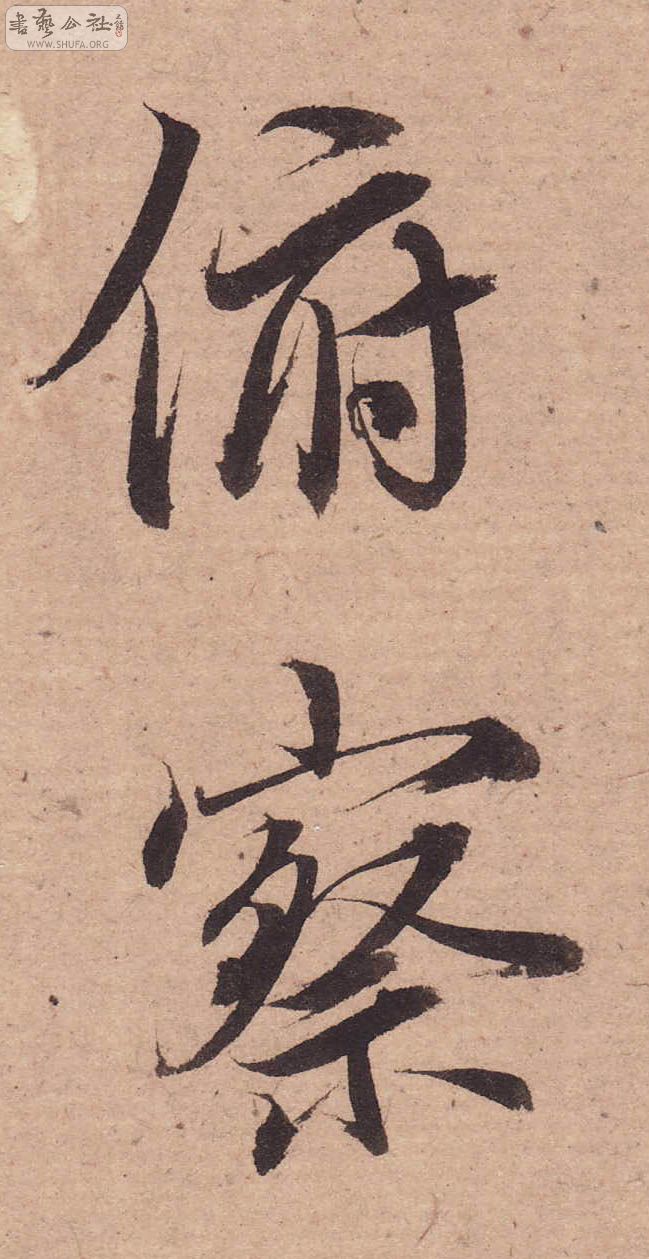 書藝公社
WWW.SHUFA.ORG
俯察